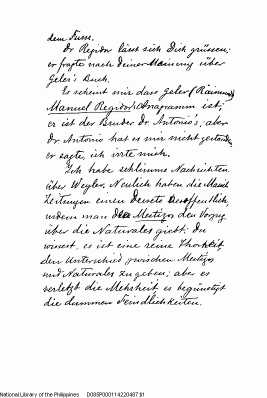 dem Fusse.
Dr Regidor lässt sich Dich grüssen;
er fragte nach Deiner Meinung über
Geler's Buch.
Es scheint mir dass Geler (Raimundo)
Manuel Regidor) Anagramm ist;
er ist der Bruder Dr Antonio's; aber
Dr Antonio hat es mir nicht gestanden
er sagte, ich irrte mich.
Ich habe schlimme Nachrichten
über Weyler. Neulich haben die
Zeitungen einen decreto veröffentlicht,
indem man den Mestizos den Vorzug
über die Naturales giebt: Du
weisst, es ist eine reine Thorheit
den Unterschied zwischen Mestizos
und Naturales zu geben; aber es
verletzt die Mehrheit, es begünstigt
die dummen Feindlichkeiten.
National Library of the Philippines D00SP000114220487$1